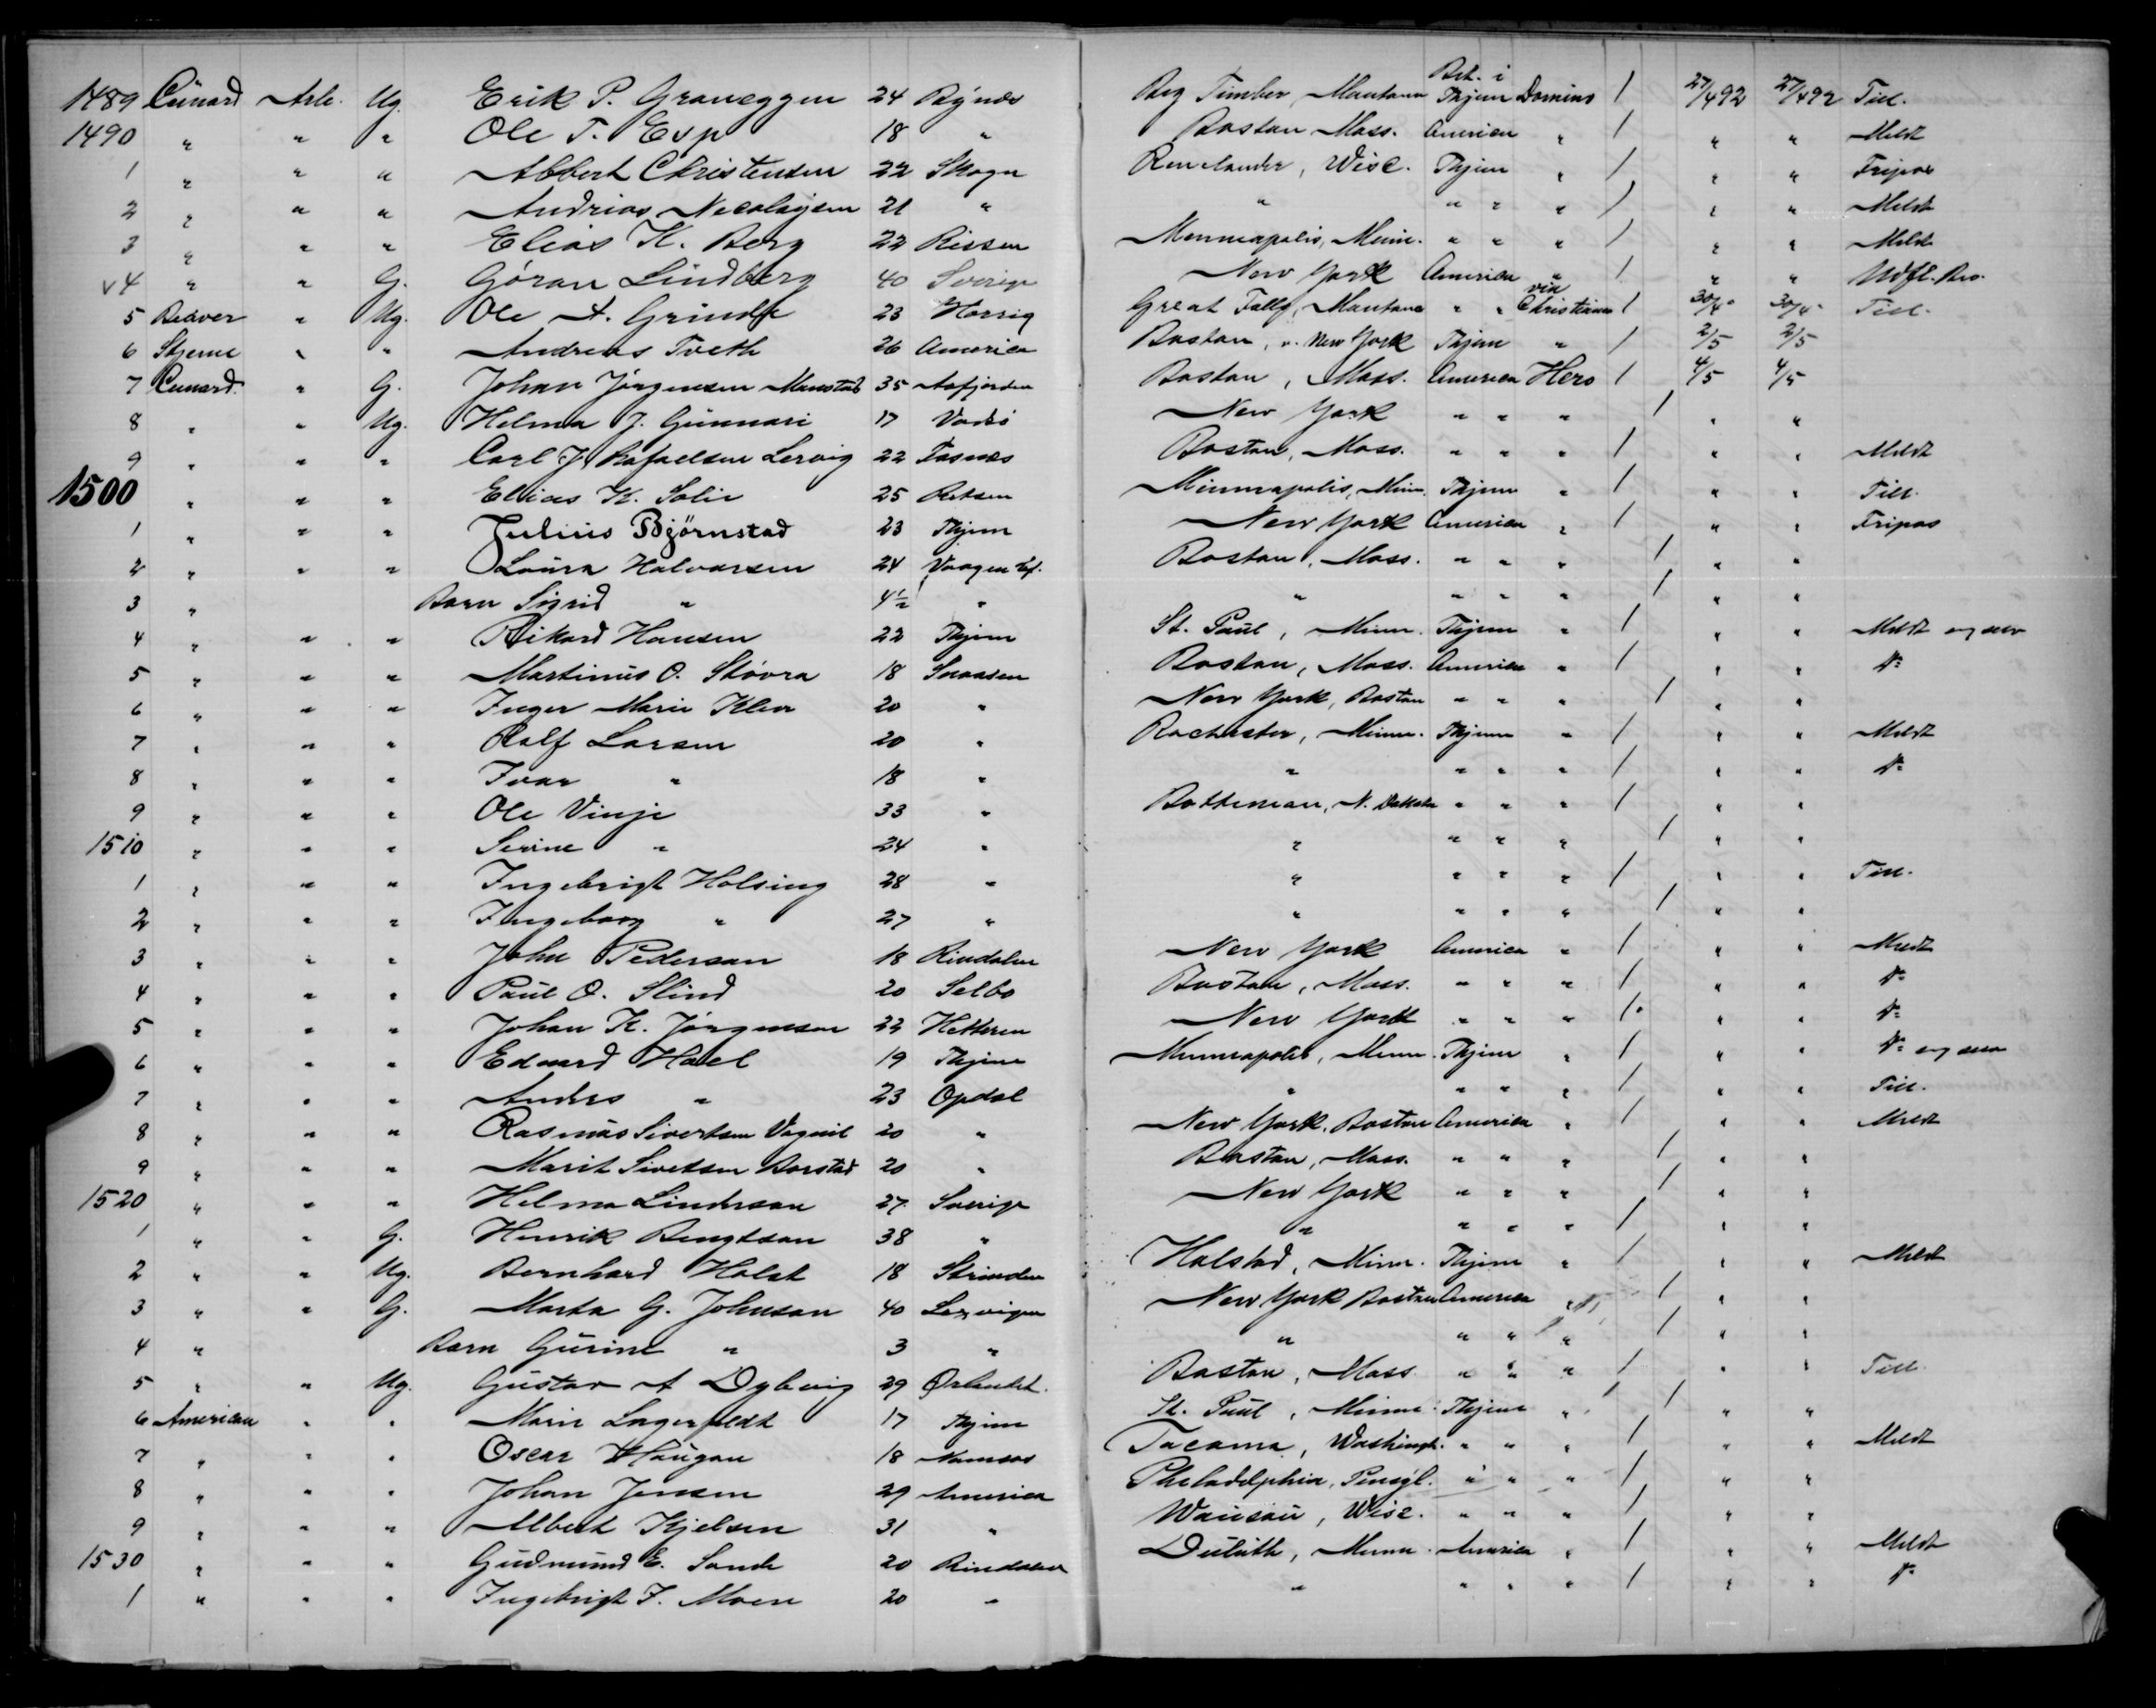 1489 Cunard Arb. Ug. Erik P. Graneggen 24 Bynæs Big Timber Montana Bet. i Thjem Domino / 27/4 92 27/4 92 Till.
1490 " " " Ole T. Esp 18 " Boston Mass. America " / " " Meldt
1 " " " Albert Christensen 22 Skogn Renelander, Wisc. Thjem " / " " Fripas
2 " " " Andrias Necolaysen 21 " " " " " / " " Meldt
3 " " " Elias K. Berg 22 Rissen Menneapolis, Minn. " " " / " " Meldt
v4 " " G. Göran Lindberg 40 Sverige New York America " / " " Udfl. Bev.
5 Beaver " Ug. Ole A. Grinde 23 Great Falls, Montana " " via Christiania / 30/4 30/4 Till.
6 Stjerne " " Andreas Tveth 26 America Boston, v. New York Thjem " / 2/5 2/5
7 Cunard " G. Johan Jörgensen Monstad 35 Aafjorden Boston, Mass. America Hero / 4/5 4/5
8 " " Ug. Helma J. Gunnari 17 Vadsö New York " " " / " "
9 " " " Carl J. Rafaelsen Lervig 22 Fosnæs Boston, Mass. " " " / " " Meldt
1500 " " " Elias K. Solie 25 Retsen Minneapolis, Minn. Thjem " / " " Till.
1 " " " Julius Björnstad 23 Thjem New York America " / " " Fripas
2 " " " Laura Halvorsen 24 Vaagen Lof. Boston, Mass. " " " / " "
3 " Barn Sigrid " 4½ " " " " " / " "
4 " " " Rikard Hansen 22 Thjem St. Paul, Minn. Thjem " / " " Meldt
5 " " " Martinus O. Stövra 18 Snaasen Boston, Mass. America " / " " Do
6 " " " Inger Marie Klev 20 " New York, Boston " " " / " "
7 " " " Rolf Larsen 20 " Rochester, Minn. Thjem " / " " Meldt
8 " " " Ivar " 18 " " " " " / " " Do
9 " " " Ole Vinje 33 " Bottineau, N. Dakota " " " / " "
1510 " " " Serine " 24 " " " " " / " "
1 " " " Ingebrigt Holsing 28 " " " " " / " " Till.
2 " " " Ingeborg " 27 " " " " " / " "
3 " " " John Pedersen 18 Rindalen New York America " / " " Meldt
4 " " " Paul O. Slind 20 Selbo Boston, Mass. " " " / " " Do
5 " " " Johan K. Jörgensen 22 Hitteren New York " " " / " " Do
6 " " " Edvard Hoel 19 Thjem Minneapolis, Minn. Thjem " / " " Do
7 " " " Anders " 23 Opdal " " " " / " " Till.
8 " " " Rasmus Sivertsen Vognil 20 " New York, Boston America " / " " Meldt
9 " " " Marit Sivertsen Borstad 20 " Boston, Mass. " " " / " "
1520 " " " Helma Linderson 27 Sverige New York " " " / " "
1 " " G. Henrik Bengtson 38 " " " " " / " "
2 " " Ug. Bernhard Holst 18 Strinden Halstad, Minn. Thjem " / " " Meldt
3 " " G. Marta G. Johnson 40 New York Boston America " / " "
4 " Barn Gurine " 3 " " " " " / " "
5 " " Ug. Gustav A Dybvig 29 Ørlandet. Boston, Mass. " " " / " " Till
6 American " " Marie Lagerfeldt 17 Thjem St. Paul, Minn. Thjem " / " "
7 " " " Oscar Haugan 18 Namsos Tacoma, Washingt. " " " / " " Meldt
8 " " " Johan Jensen 29 America Pheladelphia, Pensyl. " " " / " "
9 " " " Albert Kjelsen 31 " Wausau, Wisc. " " " / " "
1530 " " " Gudmund E. Sande 20 Rindalen Duluth, Minn. America " / " " Meldt
1 " " " Ingebrigt J. Moen 20 " " " " " / " " Do